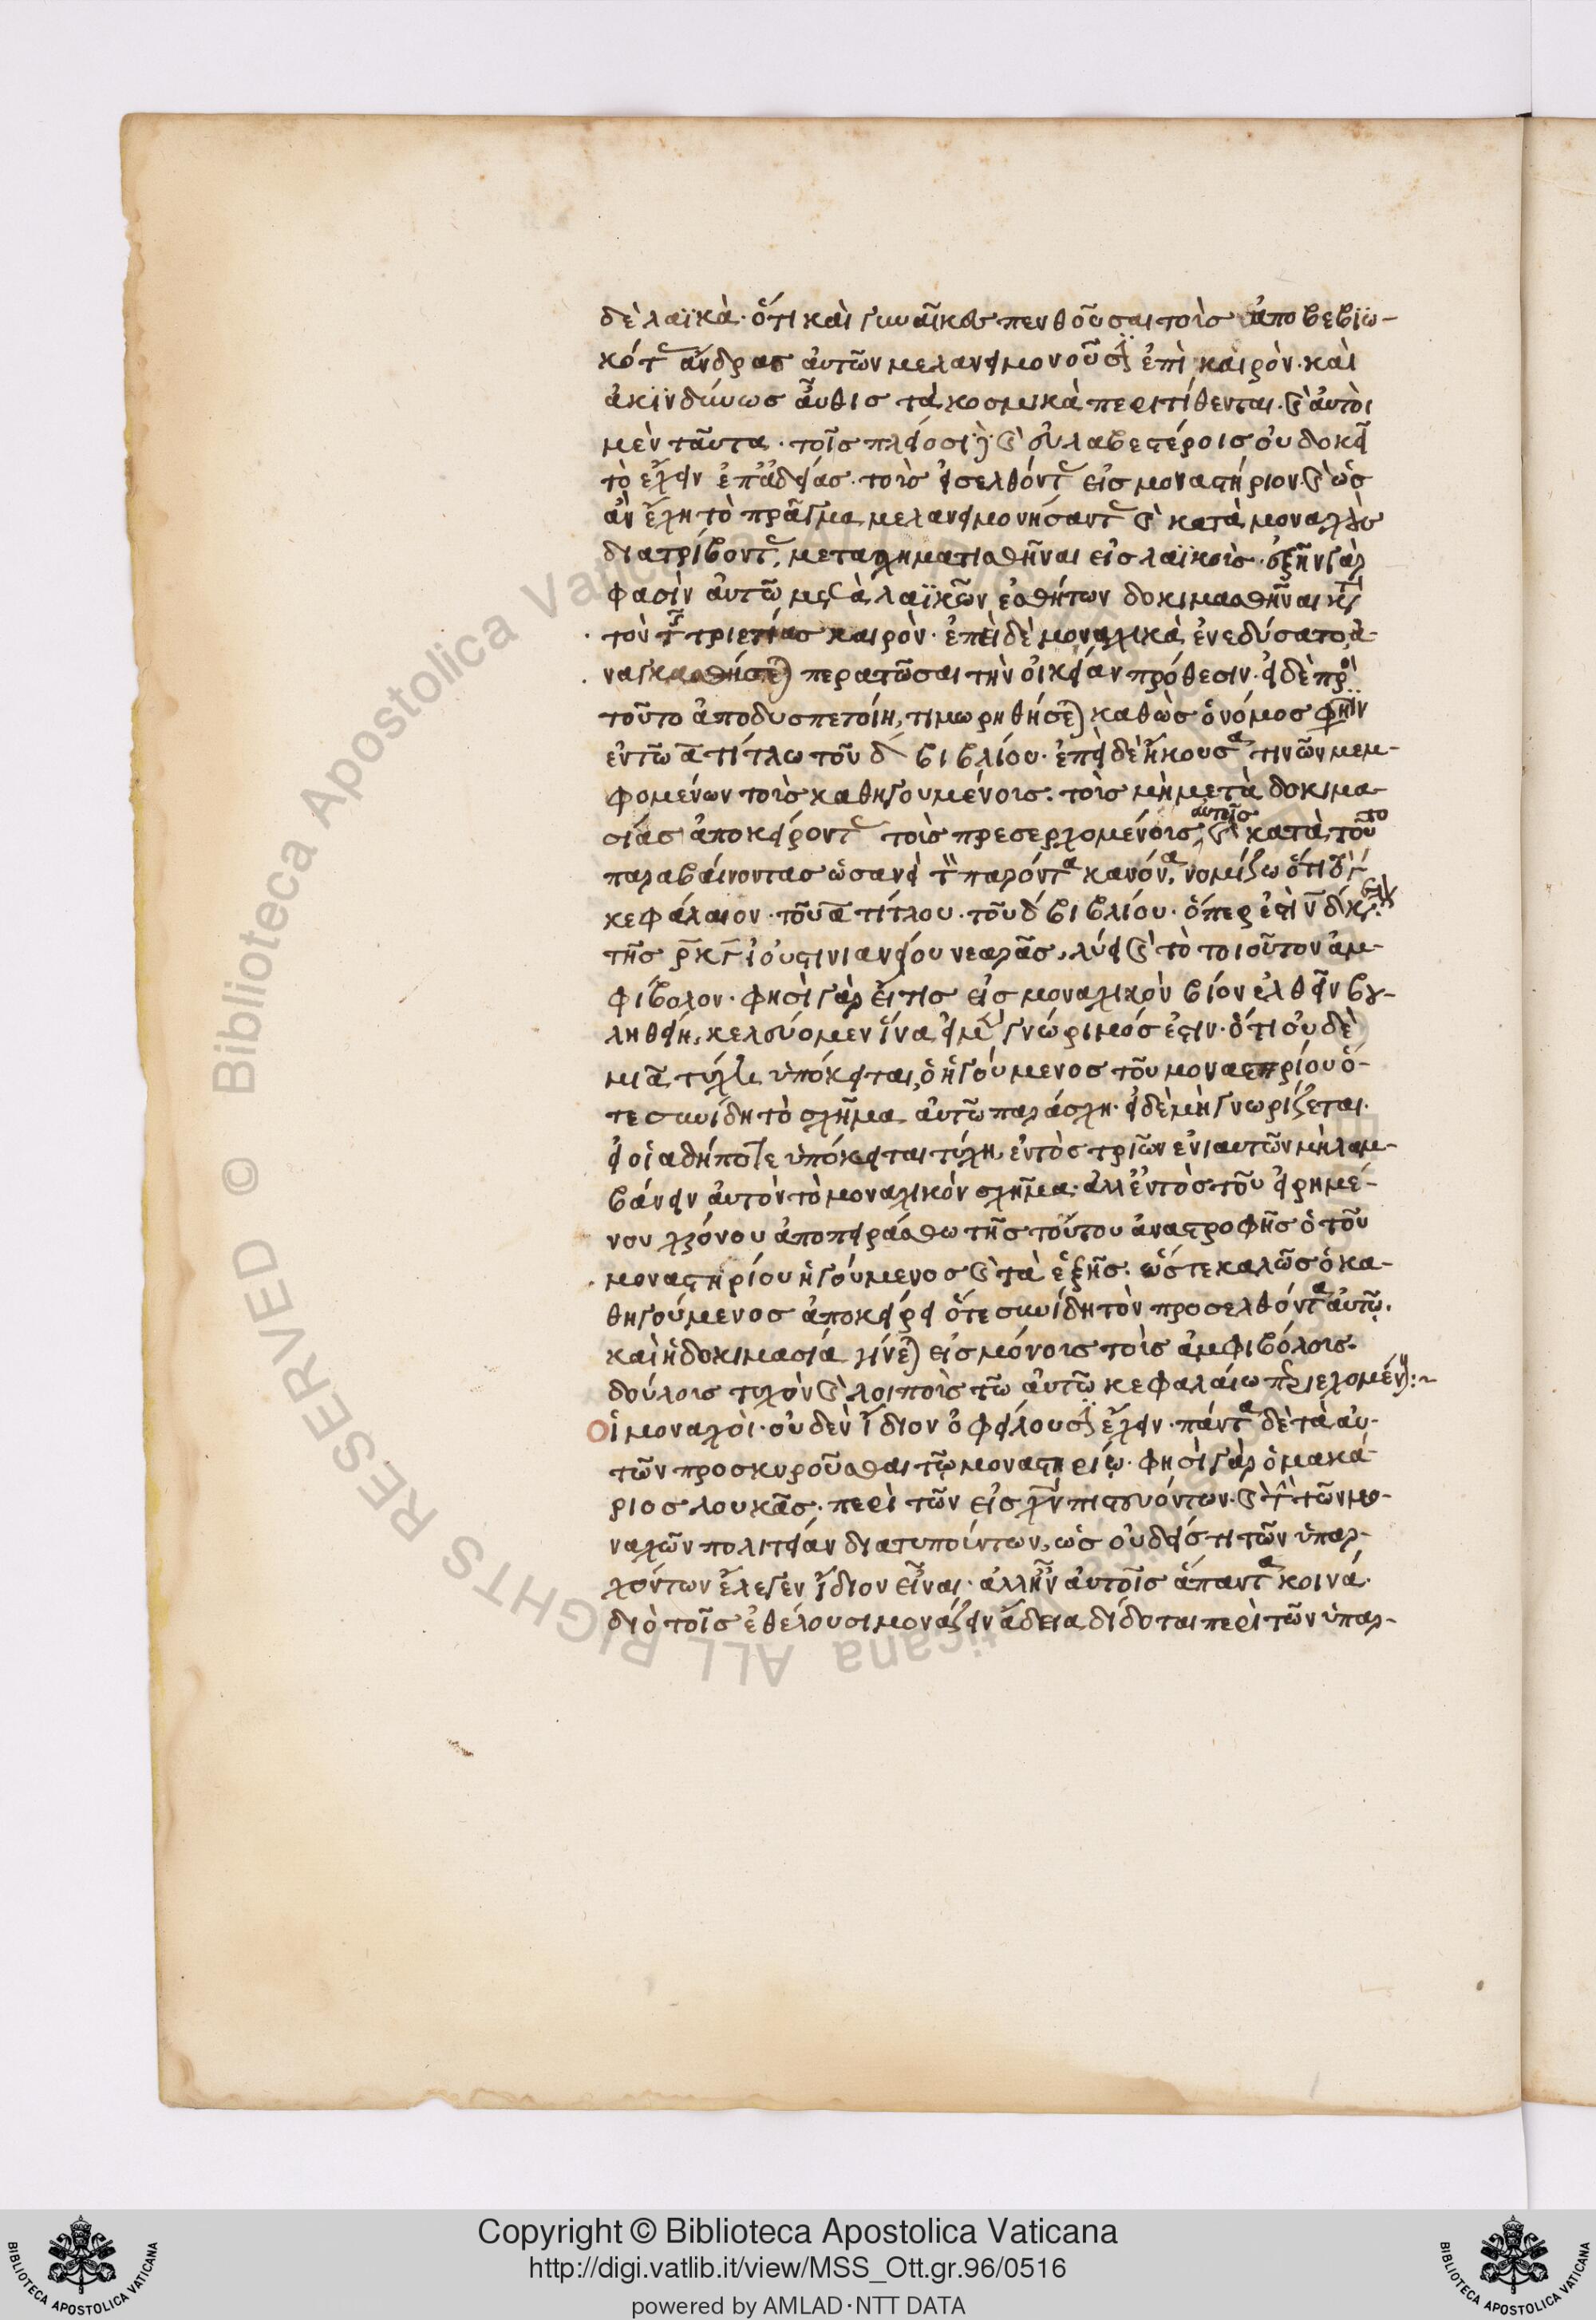 δὲ λαϊκά· ὅτι καὶ γυναῖκες πενθοῦσαι τοὺς ἀποβεβιω-
κότ ἄνδρας αὐτῶν μελανειμονοῦσι ἐπὶ καιρὸν· καὶ
ἀκινδύνως αὖθις τὰ κοσμικὰ περιτίθενται. καὶ αὐτοὶ
μὲν ταῦτα· τοῖς πλείοσι καὶ εὐλαβεστέροις οὐ δοκεῖ
τὸ ἔχειν ἐπ' ἀδείας· τοὺς εἰσελθόντ εἰς μοναστήριον· καὶ ὡς
ἂν ἔχη τὸ πρᾶγμα μελανειμονήσαντ καὶ κατὰ μοναχοὺς
διατρίβοντ, μετασχηματισθῆναι εἰς λαϊκούς· ἐξῆν γὰρ
φασὶν αὐτῶ μετὰ λαϊκῶν ἐσθήτων δοκιμασθῆναι
τὸν τῆς τριετίας καιρὸν· ἐπεὶ δὲ μοναχικὰ ἐνεδύσατο, ἀ-
ναγκασθήσεται περατῶσαι τὴν οἰκείαν πρόθεσιν· εἰ δὲ πρὸ
τοῦτο ἀποδυσπετοίη, τιμωρηθήσεται καθὼς ὁ νόμος φησίν
ἐν τῶ α τίτλω τοῦ δ βιβλίου· ἐπεὶ δὲ ἤκουσα τινῶν μεμ-
φομένων τοὺς καθηγουμένους· τοὺς μὴ μετὰ δοκιμα-
σίας ἀποκείροντ τοὺς προσερχομένους αὐτοῖς, καὶ κατὰ τοῦτο
παραβαίνοντας ὡσανεὶ τὸν παρόντα κανόνα, νομίζω ὅτι τὸ γ
κεφάλαιον· τοῦ α τίτλου· τοῦ δ βιβλίου· ὅπερ ἐστὶν
τῆς ρκγ ἰουστινιανείου νεαρᾶς, λύει καὶ τὸ τοιοῦτον ἀμ-
φίβολον· φησὶ γὰρ εἴ τις εἰς μοναχικὸν βίον ἐλθεῖν βου-
ληθείη, κελεύομεν ἵνα εἰ μὲν γνώριμός ἐστιν· ὅτι οὐδὲ
μιᾶ τύχη ὑπόκειται, ὁ ἡγούμενος τοῦ μοναστηρίου ὅ-
τε συνίδη τὸ σχῆμα αὐτῶ παράσχη· εἰ δὲ μὴ γνωρίζεται
εἰ οἱαδήποτε ὑπόκειται τύχη ἐντὸς τριῶν ἐνιαυτῶν μὴ λαμ-
βάνειν αὐτὸν τὸ μοναχικὸν σχῆμα· ἀλλ' ἐντὸς τοῦ εἰρημέ-
νου χρόνου ἀποπειράσθω τῆς τούτου ἀναστροφῆς ὁ τοῦ
μοναστηρίου ἡγούμενος καὶ τὰ ἑξῆς· ὥστε καλῶς ὁ κα-
θηγούμενος ἀποκείρει ὅτε συνίδη τὸν προσελθόντα αὐτῶ·
καὶ ἡ δοκιμασία γίνεται εἰς μόνους τοὺς ἀμφιβόλους·
δούλους τυχὸν καὶ λοιποὺς τῶ αὐτῶ κεφαλαίω περιεχομένους:~
Οἱ μοναχοὶ· οὐδὲν ἴδιον ὀφείλουσι ἔχειν· πάντα δὲ τὰ αὐ-
τῶν προσκυροῦσθαι τῷ μοναστηρίῳ· φησὶ γὰρ ὁ μακά-
ριος λουκᾶς· περὶ τῶν εἰς χν πιστευόντων· καὶ τὴν τῶν μο-
ναχῶν πολιτείαν διατυπούντων, ὡς οὐδείς τι τῶν ὑπαρ-
χόντων ἔλεγεν ἴδιον εἶναι· ἀλλ' ἦν αὐτοῖς ἅπαντα κοινά·
διὸ τοῖς ἐθέλουσι μονάζειν ἄδεια δίδοται περὶ τῶν ὑπαρ-
Copyright © Biblioteca Apostolica Vaticana
http://digi.vatlib.it/view/MSS_Ott.gr.96/0516
powered by AMLAD·NTT DATA
BIBLIOTECA APOSTOLICA VATICANA
BIBLIOTECA APOSTOLICA VATICANA